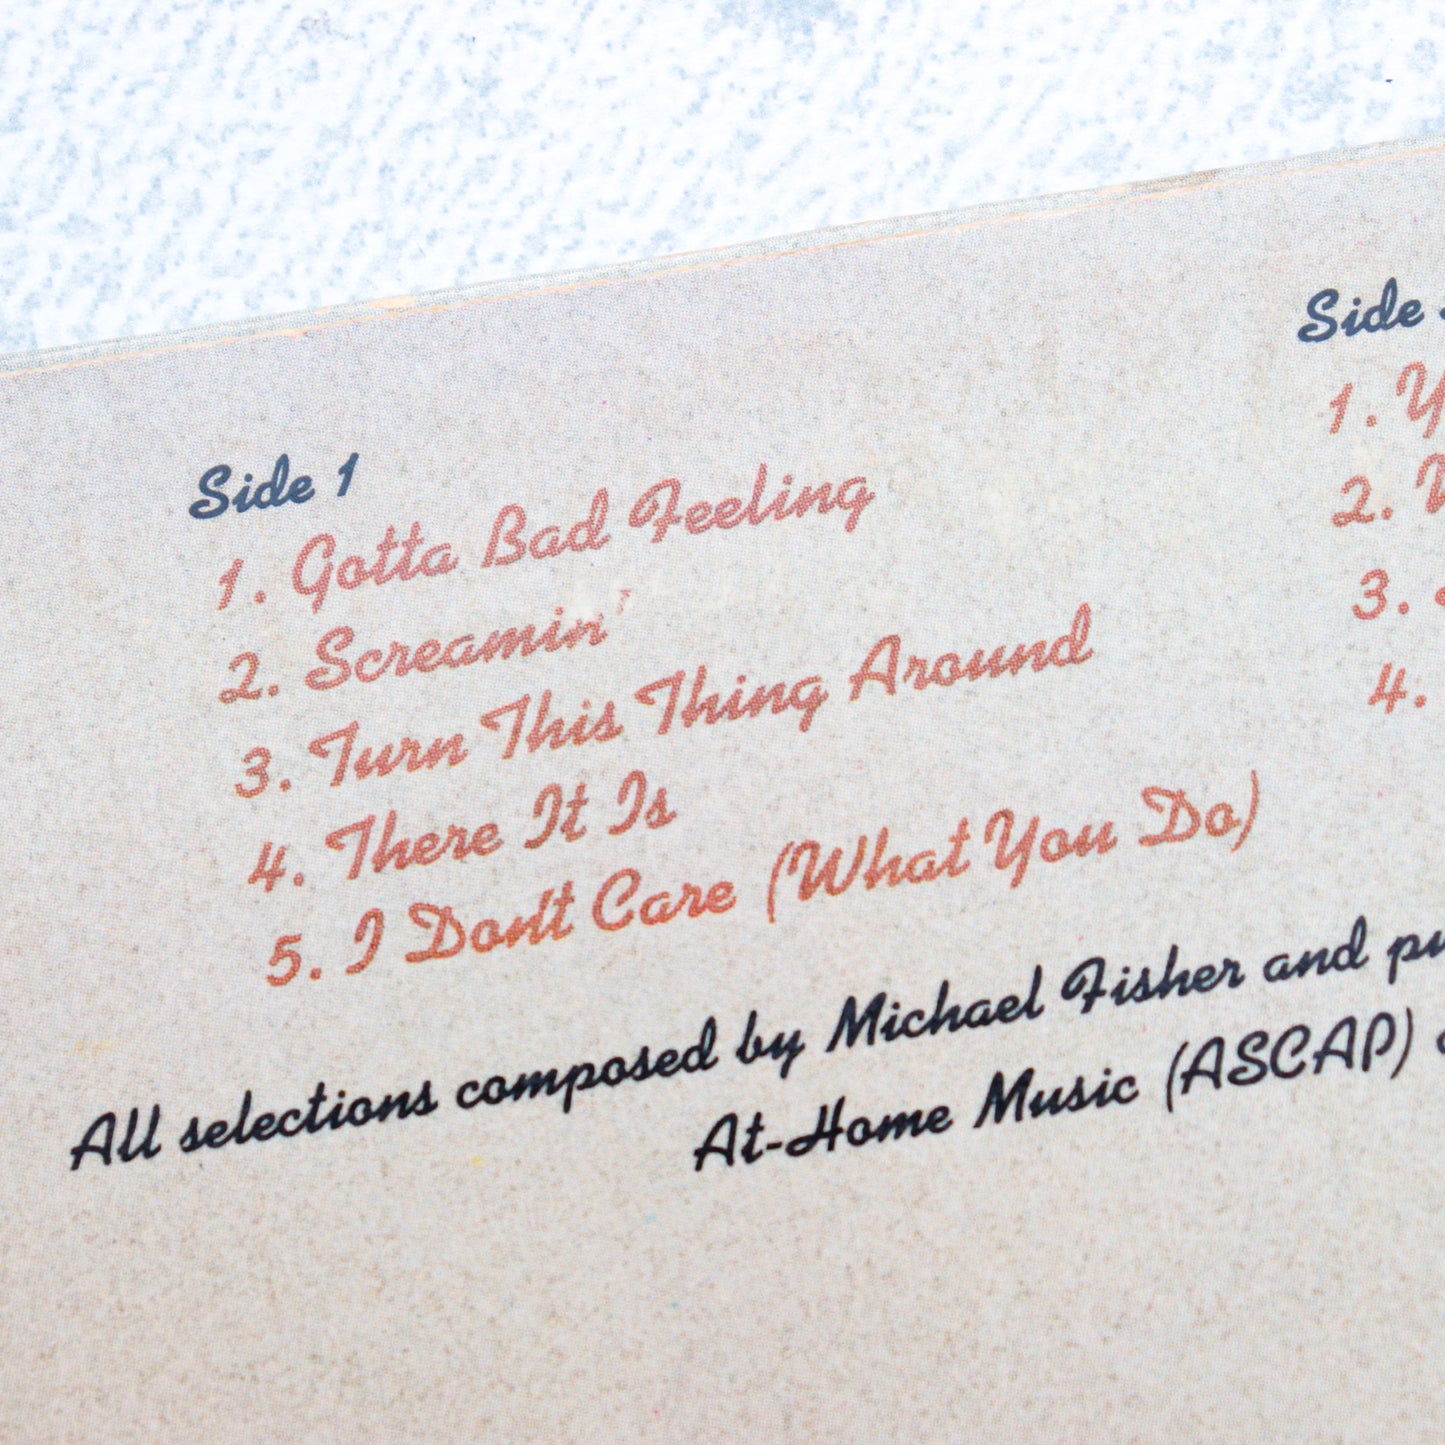 Side 1
1. Gotta Bad Feeling
2. Screamin'
3. Turn This Thing Around
4. There It Is
5. I Don't Care (What You Do)
Side
1.
2.
3.
4.
All selections composed by Michael Fisher and
At-Home Music (ASCAP)